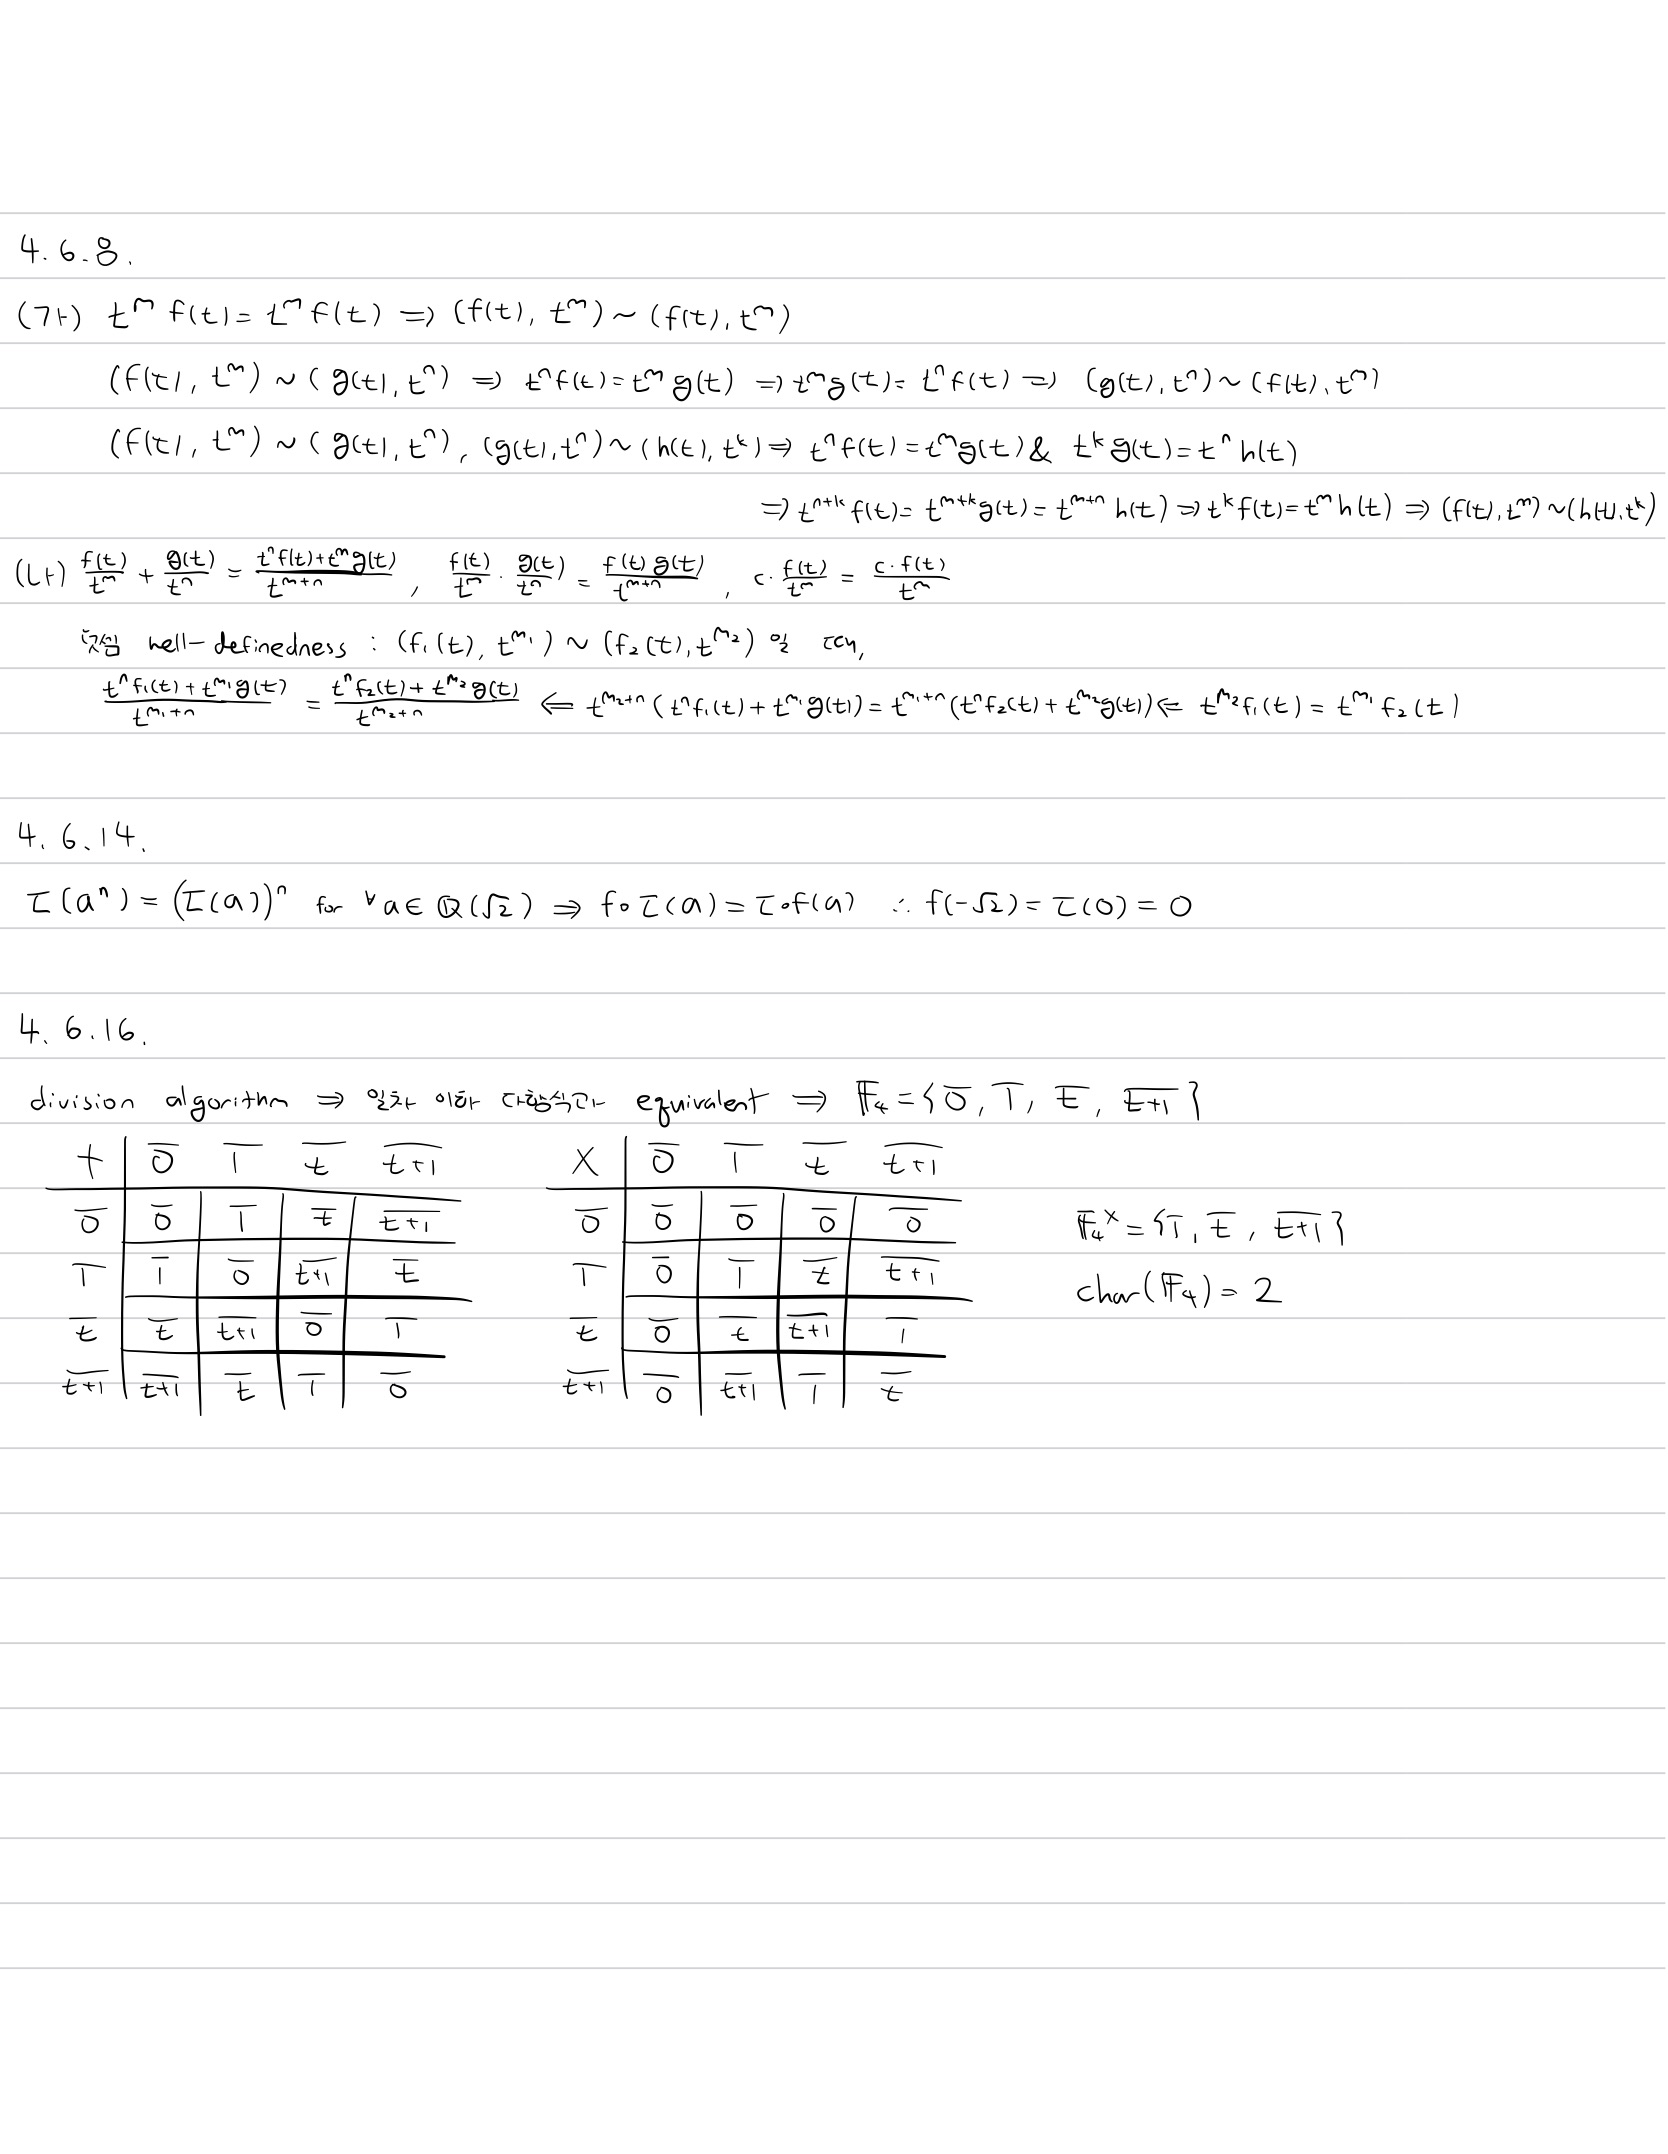 4.6.8.
(가) t^m f(t) = t^m f(t) ⇒ (f(t), t^m) ~ (f(t), t^m)
(f(t), t^m) ~ (g(t), t^n) ⇒ t^n f(t) = t^m g(t) ⇒ t^m g(t) = t^n f(t) ⇒ (g(t), t^n) ~ (f(t), t^m)
(f(t), t^m) ~ (g(t), t^n), (g(t), t^n) ~ (h(t), t^k) ⇒ t^n f(t) = t^m g(t) & t^k g(t) = t^n h(t)
⇒ t^{n+k} f(t) = t^{m+k} g(t) = t^{m+n} h(t) ⇒ t^k f(t) = t^m h(t) ⇒ (f(t), t^m) ~ (h(t), t^k)
(나) f(t)/t^m + g(t)/t^n = (t^n f(t) + t^m g(t))/t^{m+n}, f(t)/t^m · g(t)/t^n = f(t) g(t)/t^{m+n}, c · f(t)/t^m = c · f(t)/t^m
덧셈 well-definedness : (f₁(t), t^{m₁}) ~ (f₂(t), t^{m₂}) 일 때,
(t^n f₁(t) + t^{m₁} g(t))/t^{m₁+n} = (t^n f₂(t) + t^{m₂} g(t))/t^{m₂+n} ⇐ t^{m₂+n} (t^n f₁(t) + t^{m₁} g(t)) = t^{m₁+n} (t^n f₂(t) + t^{m₂} g(t)) ⇐ t^{m₂} f₁(t) = t^{m₁} f₂(t)
4.6.14.
τ(a^n) = (τ(a))^n for ∀a ∈ ℚ(√2) ⇒ f∘τ(a) = τ∘f(a) ∴ f(-√2) = τ(0) = 0
4.6.16.
division algorithm ⇒ 일차 이하 다항식과 equivalent ⇒ 𝔽₄ = {0̅, 1̅, t̅, t+1̅}
+ 0̅ 1̅ t̅ t+1̅ × 0̅ 1̅ t̅ t+1̅
0̅ 0̅ 1̅ t̅ t+1̅ 0̅ 0̅ 0̅ 0̅ 0̅ 𝔽₄^× = {1̅, t̅, t+1̅}
1̅ 1̅ 0̅ t+1̅ t̅ 1̅ 0̅ 1̅ t̅ t+1̅ char(𝔽₄) = 2
t̅ t̅ t+1̅ 0̅ 1̅ t̅ 0̅ t̅ t+1̅ 1̅
t+1̅ t+1̅ t̅ 1̅ 0̅ t+1̅ 0̅ t+1̅ 1̅ t̅